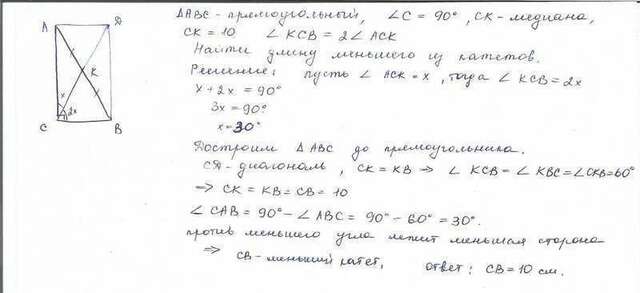 ΔABC - прямоугольный, ∠C = 90°, CK - медиана,
CK = 10 ∠KCB = 2∠ACK
Найти длину меньшего из катетов.
Решение: пусть ∠ACK = x, тогда ∠KCB = 2x
x + 2x = 90°
3x = 90°
x = 30°
Достроим ΔABC до прямоугольника.
СД - диагональ, CK = KB ⇒ ∠KCB = ∠KBC = ∠CKB = 60°
⇒ CK = KB = CB = 10
∠CAB = 90° - ∠ABC = 90° - 60° = 30°.
против меньшего угла лежит меньшая сторона
⇒ CB - меньший катет, ответ: CB = 10 см.
A Д
K
x 2x
C B